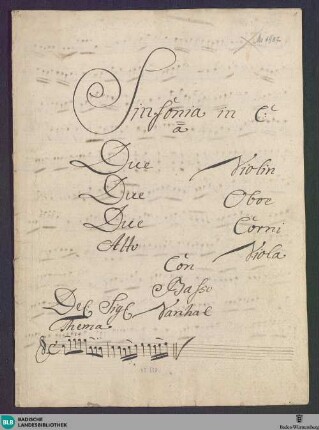 Sinfonia in C
a
Due Violin
Due Oboe
Due Corni
Alto Viola
Con
Basso
Del Sig Vanhal
Thema
BLB BADISCHE LANDESBIBLIOTHEK
Baden-Württemberg